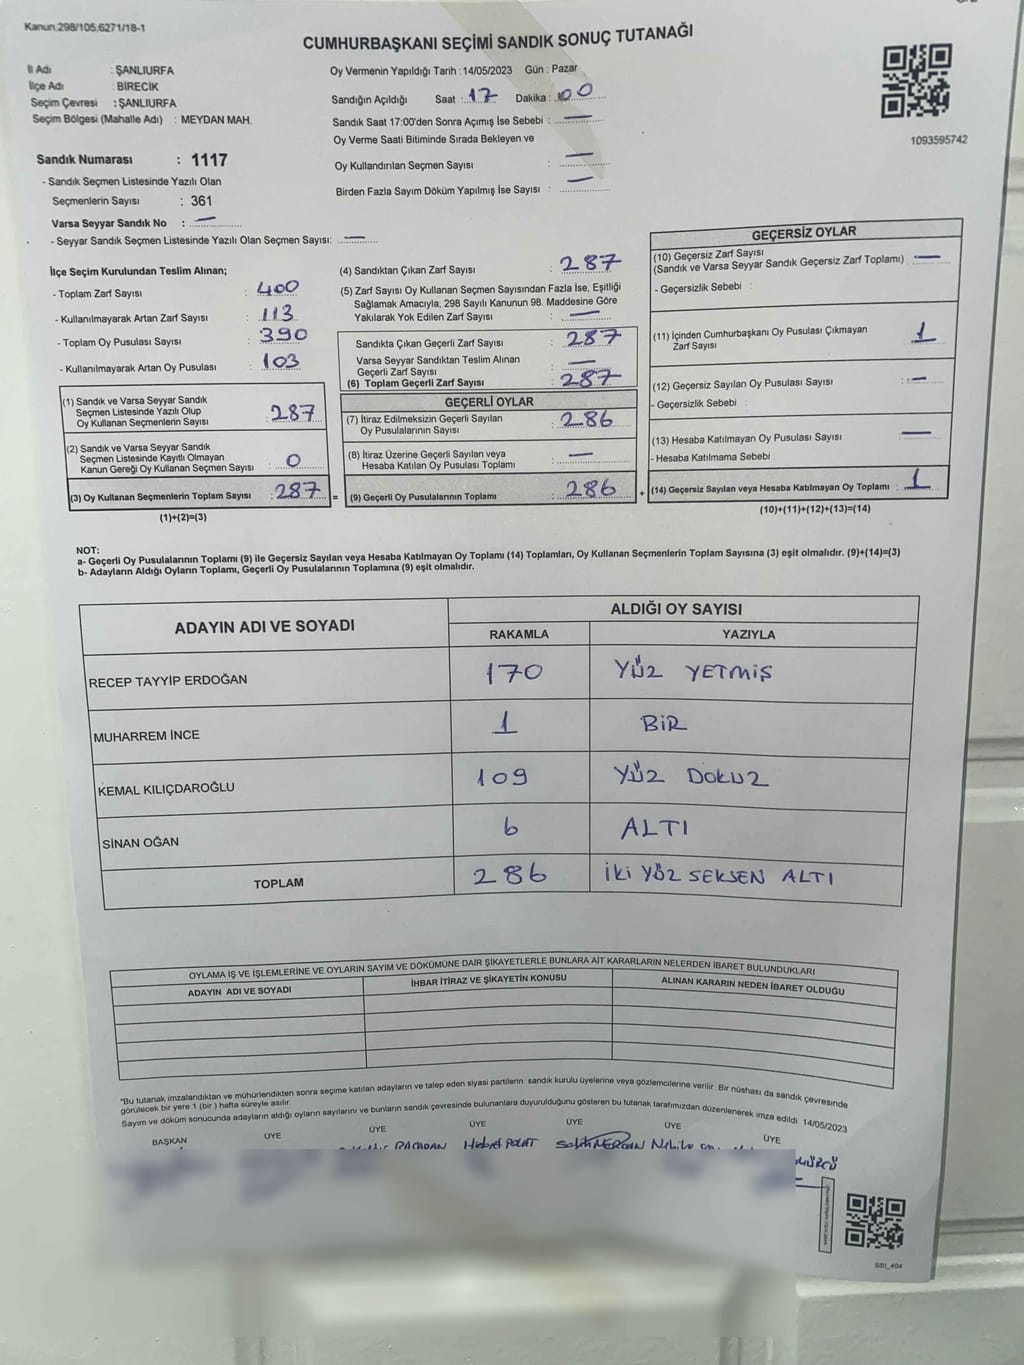 Kanun:298/105,6271/18-1
CUMHURBAŞKANI SEÇİMİ SANDIK SONUÇ TUTANAĞI
İl Adı : ŞANLIURFA
İlçe Adı : BİRECİK
Seçim Çevresi : ŞANLIURFA
Seçim Bölgesi (Mahalle Adı) : MEYDAN MAH.
Oy Vermenin Yapıldığı Tarih : 14/05/2023 Gün : Pazar
Sandığın Açıldığı Saat : 17 Dakika : 00
Sandık Saat 17:00'den Sonra Açımış İse Sebebi : —
Oy Verme Saati Bitiminde Sırada Bekleyen ve
Oy Kullandırılan Seçmen Sayısı : —
Birden Fazla Sayım Döküm Yapılmış İse Sayısı : —
1093595742
Sandık Numarası : 1117
- Sandık Seçmen Listesinde Yazılı Olan
Seçmenlerin Sayısı : 361
Varsa Seyyar Sandık No : —
- Seyyar Sandık Seçmen Listesinde Yazılı Olan Seçmen Sayısı: —
İlçe Seçim Kurulundan Teslim Alınan;
- Toplam Zarf Sayısı : 400
- Kullanılmayarak Artan Zarf Sayısı : 113
- Toplam Oy Pusulası Sayısı : 390
- Kullanılmayarak Artan Oy Pusulası : 103
(1) Sandık ve Varsa Seyyar Sandık
Seçmen Listesinde Yazılı Olup
Oy Kullanan Seçmenlerin Sayısı : 287
(2) Sandık ve Varsa Seyyar Sandık
Seçmen Listesinde Kayıtlı Olmayan
Kanun Gereği Oy Kullanan Seçmen Sayısı : 0
(3) Oy Kullanan Seçmenlerin Toplam Sayısı : 287
(1)+(2)=(3)
(4) Sandıktan Çıkan Zarf Sayısı : 287
(5) Zarf Sayısı Oy Kullanan Seçmen Sayısından Fazla İse, Eşitliği
Sağlamak Amacıyla, 298 Sayılı Kanunun 98. Maddesine Göre
Yakılarak Yok Edilen Zarf Sayısı : —
Sandıkta Çıkan Geçerli Zarf Sayısı : 287
Varsa Seyyar Sandıktan Teslim Alınan
Geçerli Zarf Sayısı : —
(6) Toplam Geçerli Zarf Sayısı : 287
GEÇERLİ OYLAR
(7) İtiraz Edilmeksizin Geçerli Sayılan
Oy Pusulalarının Sayısı : 286
(8) İtiraz Üzerine Geçerli Sayılan veya
Hesaba Katılan Oy Pusulası Toplamı : —
= (9) Geçerli Oy Pusulalarının Toplamı : 286
GEÇERSİZ OYLAR
(10) Geçersiz Zarf Sayısı
(Sandık ve Varsa Seyyar Sandık Geçersiz Zarf Toplamı) : —
- Geçersizlik Sebebi :
(11) İçinden Cumhurbaşkanı Oy Pusulası Çıkmayan
Zarf Sayısı : 1
(12) Geçersiz Sayılan Oy Pusulası Sayısı : —
- Geçersizlik Sebebi :
(13) Hesaba Katılmayan Oy Pusulası Sayısı : —
- Hesaba Katılmama Sebebi :
+ (14) Geçersiz Sayılan veya Hesaba Katılmayan Oy Toplamı : 1
(10)+(11)+(12)+(13)=(14)
NOT:
a- Geçerli Oy Pusulalarının Toplamı (9) ile Geçersiz Sayılan veya Hesaba Katılmayan Oy Toplamı (14) Toplamları, Oy Kullanan Seçmenlerin Toplam Sayısına (3) eşit olmalıdır. (9)+(14)=(3)
b- Adayların Aldığı Oyların Toplamı, Geçerli Oy Pusulalarının Toplamına (9) eşit olmalıdır.
ADAYIN ADI VE SOYADI
ALDIĞI OY SAYISI
RAKAMLA YAZIYLA
RECEP TAYYİP ERDOĞAN 170 YÜZ YETMİŞ
MUHARREM İNCE 1 BİR
KEMAL KILIÇDAROĞLU 109 YÜZ DOKUZ
SİNAN OĞAN 6 ALTI
TOPLAM 286 İKİ YÜZ SEKSEN ALTI
OYLAMA İŞ VE İŞLEMLERİNE VE OYLARIN SAYIM VE DÖKÜMÜNE DAİR ŞİKAYETLERLE BUNLARA AİT KARARLARIN NELERDEN İBARET BULUNDUKLARI
ADAYIN ADI VE SOYADI İHBAR İTİRAZ VE ŞİKAYETİN KONUSU ALINAN KARARIN NEDEN İBARET OLDUĞU
"Bu tutanak imzalandıktan ve mühürlendikten sonra seçime katılan adayların ve talep eden siyasi partilerin sandık kurulu üyelerine veya gözlemcilerine verilir. Bir nüshası da sandık çevresinde
görülecek bir yere 1 (bir) hafta süreyle asılır.
Sayım ve döküm sonucunda adayların aldığı oyların sayılarını ve bunların sandık çevresinde bulunanlara duyurulduğunu gösteren bu tutanak tarafımızdan düzenlenerek imza edildi. 14/05/2023
BAŞKAN ÜYE ÜYE ÜYE ÜYE ÜYE ÜYE
Hidayet POLAT Salih MERCAN